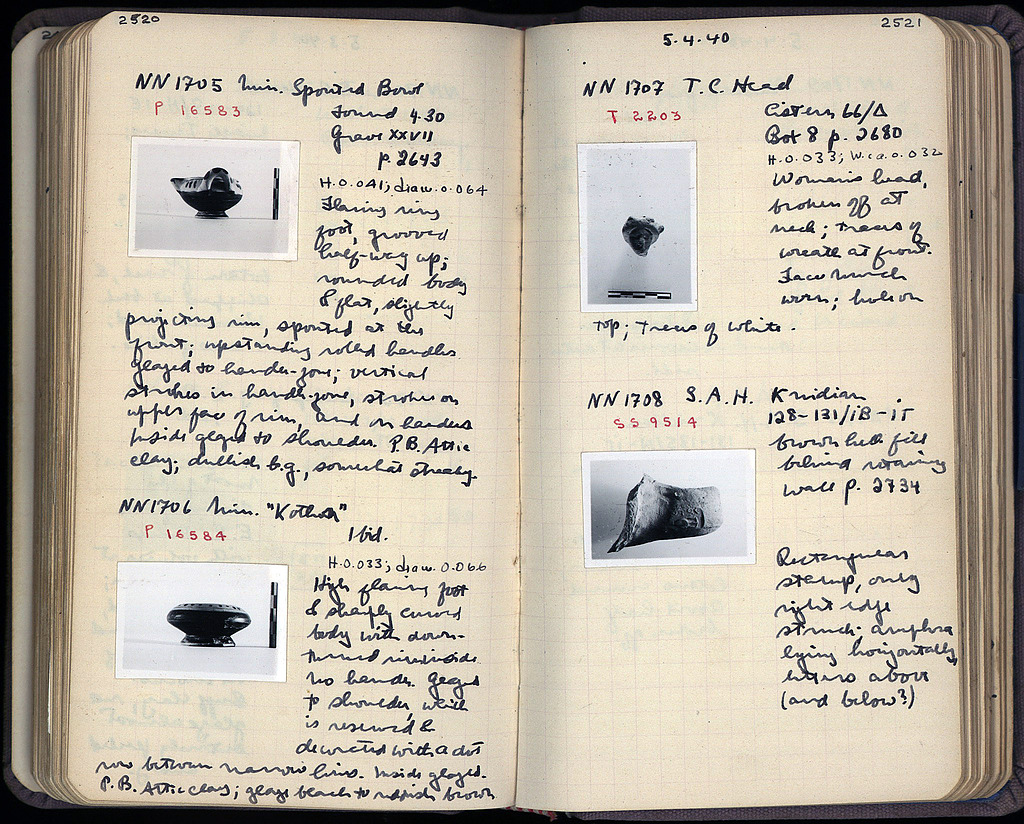 2520
NN 1705 Min. Spouted Bowl
P 16583
Found 4.30
Grave XXVII
p. 2643
H. 0.041; diam. 0.064
Flaring ring
foot, grooved
half-way up;
rounded body
& flat, slightly
projecting rim, spouted at the
front; upstanding rolled handles.
Glazed to handle-zone; vertical
strokes in handle-zone, strokes on
upper face of rim, and on handles
Inside glazed to shoulder. P.B. Attic
clay; dullish b.g., somewhat streaky.
NN 1706 Min. "Kothon"
P 16584
Ibid.
H. 0.033; diam. 0.066
High flaring foot
& sharply curved
body with down-
turned rim inside.
No handle. Glazed
to shoulder, which
is reserved &
decorated with a dot
row between narrow lines. Inside glazed.
P.B. Attic clay; glaze black to reddish brown
2521
5.4.40
NN 1707 T.C. Head
T 2203
Cistern 66/Δ
Bot 8 p. 2680
H. 0.033; W. ca. 0.032
Woman's head,
broken off at
neck; traces of
wreath at front.
Face much
worn; hole on
top; traces of white.
NN 1708 S.A.H. Knidian.
SS 9514
128-131/ΙΒ-ΙΓ
brown fill
behind retaining
wall p. 2734
Rectangular
stamp, only
right edge
struck; amphora
lying horizontally,
letters above
(and below?)